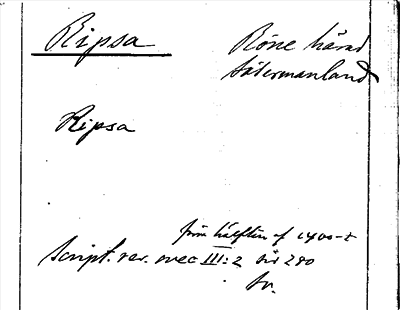 Ripsa
Röne härad
Södermanland
Ripsa
förra hälften af 1400-t
Script. rer. svec III:2 sid 280
sv.